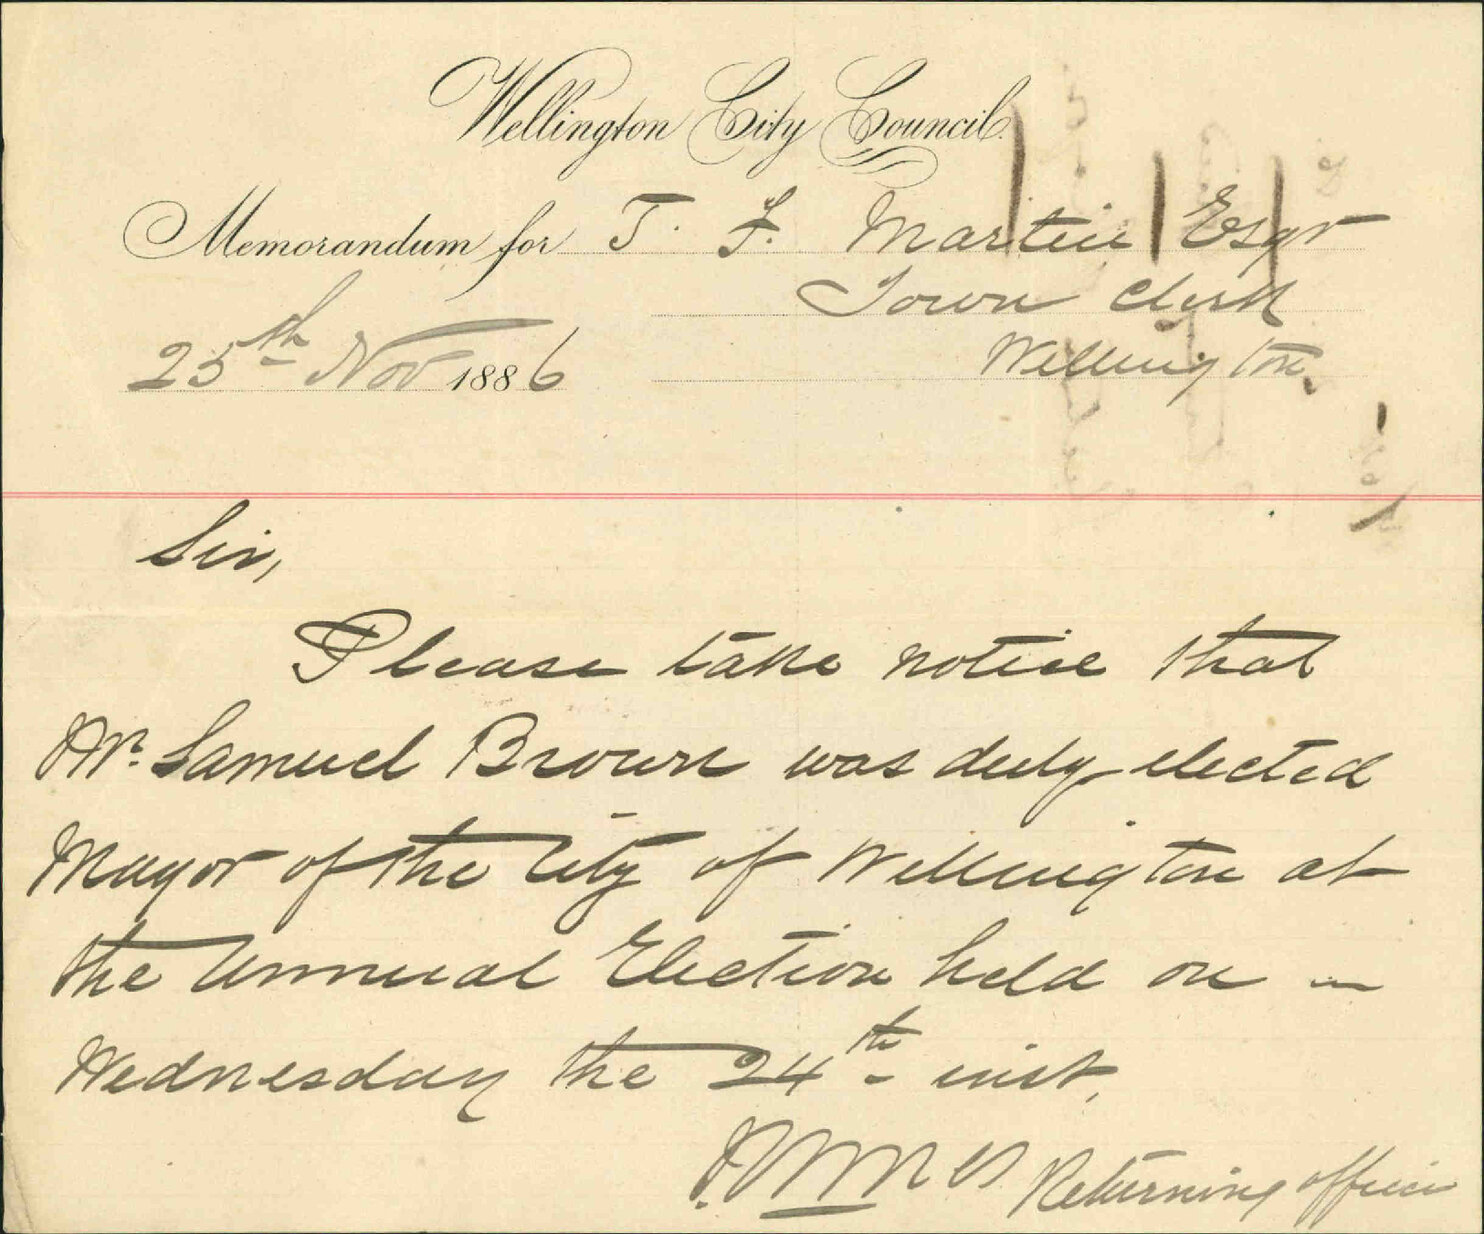 Wellington City Council.
Memorandum for T. F. Martin Esqr
Town Clerk
25th Nov 1886
Wellington.
Sir,
Please take notice that
Mr. Samuel Brown was duly elected
Mayor of the City of Wellington at
the Annual Election held on
Wednesday the 24th inst.
Returning Officer